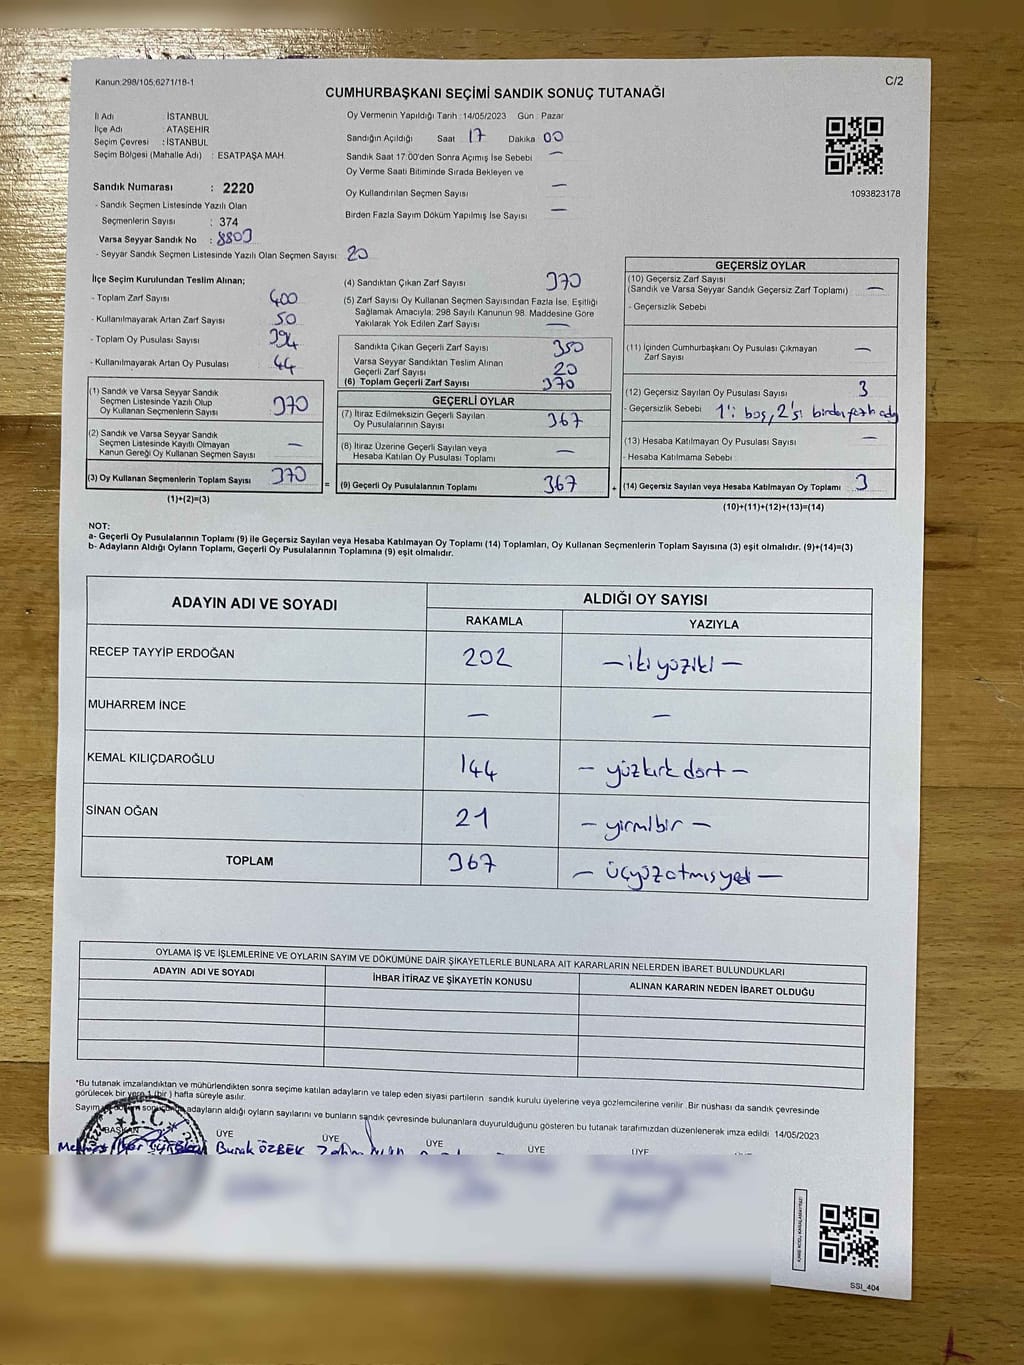 Kanun:298/105;6271/18-1
C/2
CUMHURBAŞKANI SEÇİMİ SANDIK SONUÇ TUTANAĞI
İl Adı : İSTANBUL
İlçe Adı : ATAŞEHİR
Seçim Çevresi : İSTANBUL
Seçim Bölgesi (Mahalle Adı) : ESATPAŞA MAH.
Sandık Numarası : 2220
- Sandık Seçmen Listesinde Yazılı Olan
Seçmenlerin Sayısı : 374
Varsa Seyyar Sandık No : 8803
- Seyyar Sandık Seçmen Listesinde Yazılı Olan Seçmen Sayısı: 20
Oy Vermenin Yapıldığı Tarih :14/05/2023 Gün : Pazar
Sandığın Açıldığı Saat 17 Dakika 00
Sandık Saat 17:00'den Sonra Açımış İse Sebebi —
Oy Verme Saati Bitiminde Sırada Bekleyen ve
Oy Kullandırılan Seçmen Sayısı —
Birden Fazla Sayım Döküm Yapılmış İse Sayısı —
1093823178
İlçe Seçim Kurulundan Teslim Alınan;
- Toplam Zarf Sayısı 400
- Kullanılmayarak Artan Zarf Sayısı 50
- Toplam Oy Pusulası Sayısı 394
- Kullanılmayarak Artan Oy Pusulası 44
(1) Sandık ve Varsa Seyyar Sandık
Seçmen Listesinde Yazılı Olup
Oy Kullanan Seçmenlerin Sayısı 370
(2) Sandık ve Varsa Seyyar Sandık
Seçmen Listesinde Kayıtlı Olmayan
Kanun Gereği Oy Kullanan Seçmen Sayısı —
(3) Oy Kullanan Seçmenlerin Toplam Sayısı 370
(1)+(2)=(3)
(4) Sandıktan Çıkan Zarf Sayısı 370
(5) Zarf Sayısı Oy Kullanan Seçmen Sayısından Fazla İse, Eşitliği
Sağlamak Amacıyla; 298 Sayılı Kanunun 98. Maddesine Göre
Yakılarak Yok Edilen Zarf Sayısı —
Sandıkta Çıkan Geçerli Zarf Sayısı 350
Varsa Seyyar Sandıktan Teslim Alınan
Geçerli Zarf Sayısı 20
(6) Toplam Geçerli Zarf Sayısı 370
GEÇERLİ OYLAR
(7) İtiraz Edilmeksizin Geçerli Sayılan
Oy Pusulalarının Sayısı 367
(8) İtiraz Üzerine Geçerli Sayılan veya
Hesaba Katılan Oy Pusulası Toplamı —
= (9) Geçerli Oy Pusulalarının Toplamı 367
GEÇERSİZ OYLAR
(10) Geçersiz Zarf Sayısı
(Sandık ve Varsa Seyyar Sandık Geçersiz Zarf Toplamı) —
- Geçersizlik Sebebi
(11) İçinden Cumhurbaşkanı Oy Pusulası Çıkmayan
Zarf Sayısı —
(12) Geçersiz Sayılan Oy Pusulası Sayısı 3
- Geçersizlik Sebebi 1'i boş, 2'si birden fazla aday
(13) Hesaba Katılmayan Oy Pusulası Sayısı —
- Hesaba Katılmama Sebebi
+ (14) Geçersiz Sayılan veya Hesaba Katılmayan Oy Toplamı 3
(10)+(11)+(12)+(13)=(14)
NOT:
a- Geçerli Oy Pusulalarının Toplamı (9) ile Geçersiz Sayılan veya Hesaba Katılmayan Oy Toplamı (14) Toplamları, Oy Kullanan Seçmenlerin Toplam Sayısına (3) eşit olmalıdır. (9)+(14)=(3)
b- Adayların Aldığı Oyların Toplamı, Geçerli Oy Pusulalarının Toplamına (9) eşit olmalıdır.
ADAYIN ADI VE SOYADI ALDIĞI OY SAYISI
RAKAMLA YAZIYLA
RECEP TAYYİP ERDOĞAN 202 — ikiyüziki —
MUHARREM İNCE — —
KEMAL KILIÇDAROĞLU 144 — yüzkırk dört —
SİNAN OĞAN 21 — yirmibir —
TOPLAM 367 — üçyüzatmışyedi —
OYLAMA İŞ VE İŞLEMLERİNE VE OYLARIN SAYIM VE DÖKÜMÜNE DAİR ŞİKAYETLERLE BUNLARA AİT KARARLARIN NELERDEN İBARET BULUNDUKLARI
ADAYIN ADI VE SOYADI İHBAR İTİRAZ VE ŞİKAYETİN KONUSU ALINAN KARARIN NEDEN İBARET OLDUĞU
*Bu tutanak imzalandıktan ve mühürlendikten sonra seçime katılan adayların ve talep eden siyasi partilerin sandık kurulu üyelerine veya gözlemcilerine verilir. Bir nüshası da sandık çevresinde
görülecek bir yere 1 (bir) hafta süreyle asılır.
Sayım ve döküm sonucunda adayların aldığı oyların sayılarını ve bunların sandık çevresinde bulunanlara duyurulduğunu gösteren bu tutanak tarafımızdan düzenlenerek imza edildi. 14/05/2023
T.C.
BAŞKAN ÜYE ÜYE ÜYE ÜYE ÜYE
Burak ÖZBEK
SSI_404